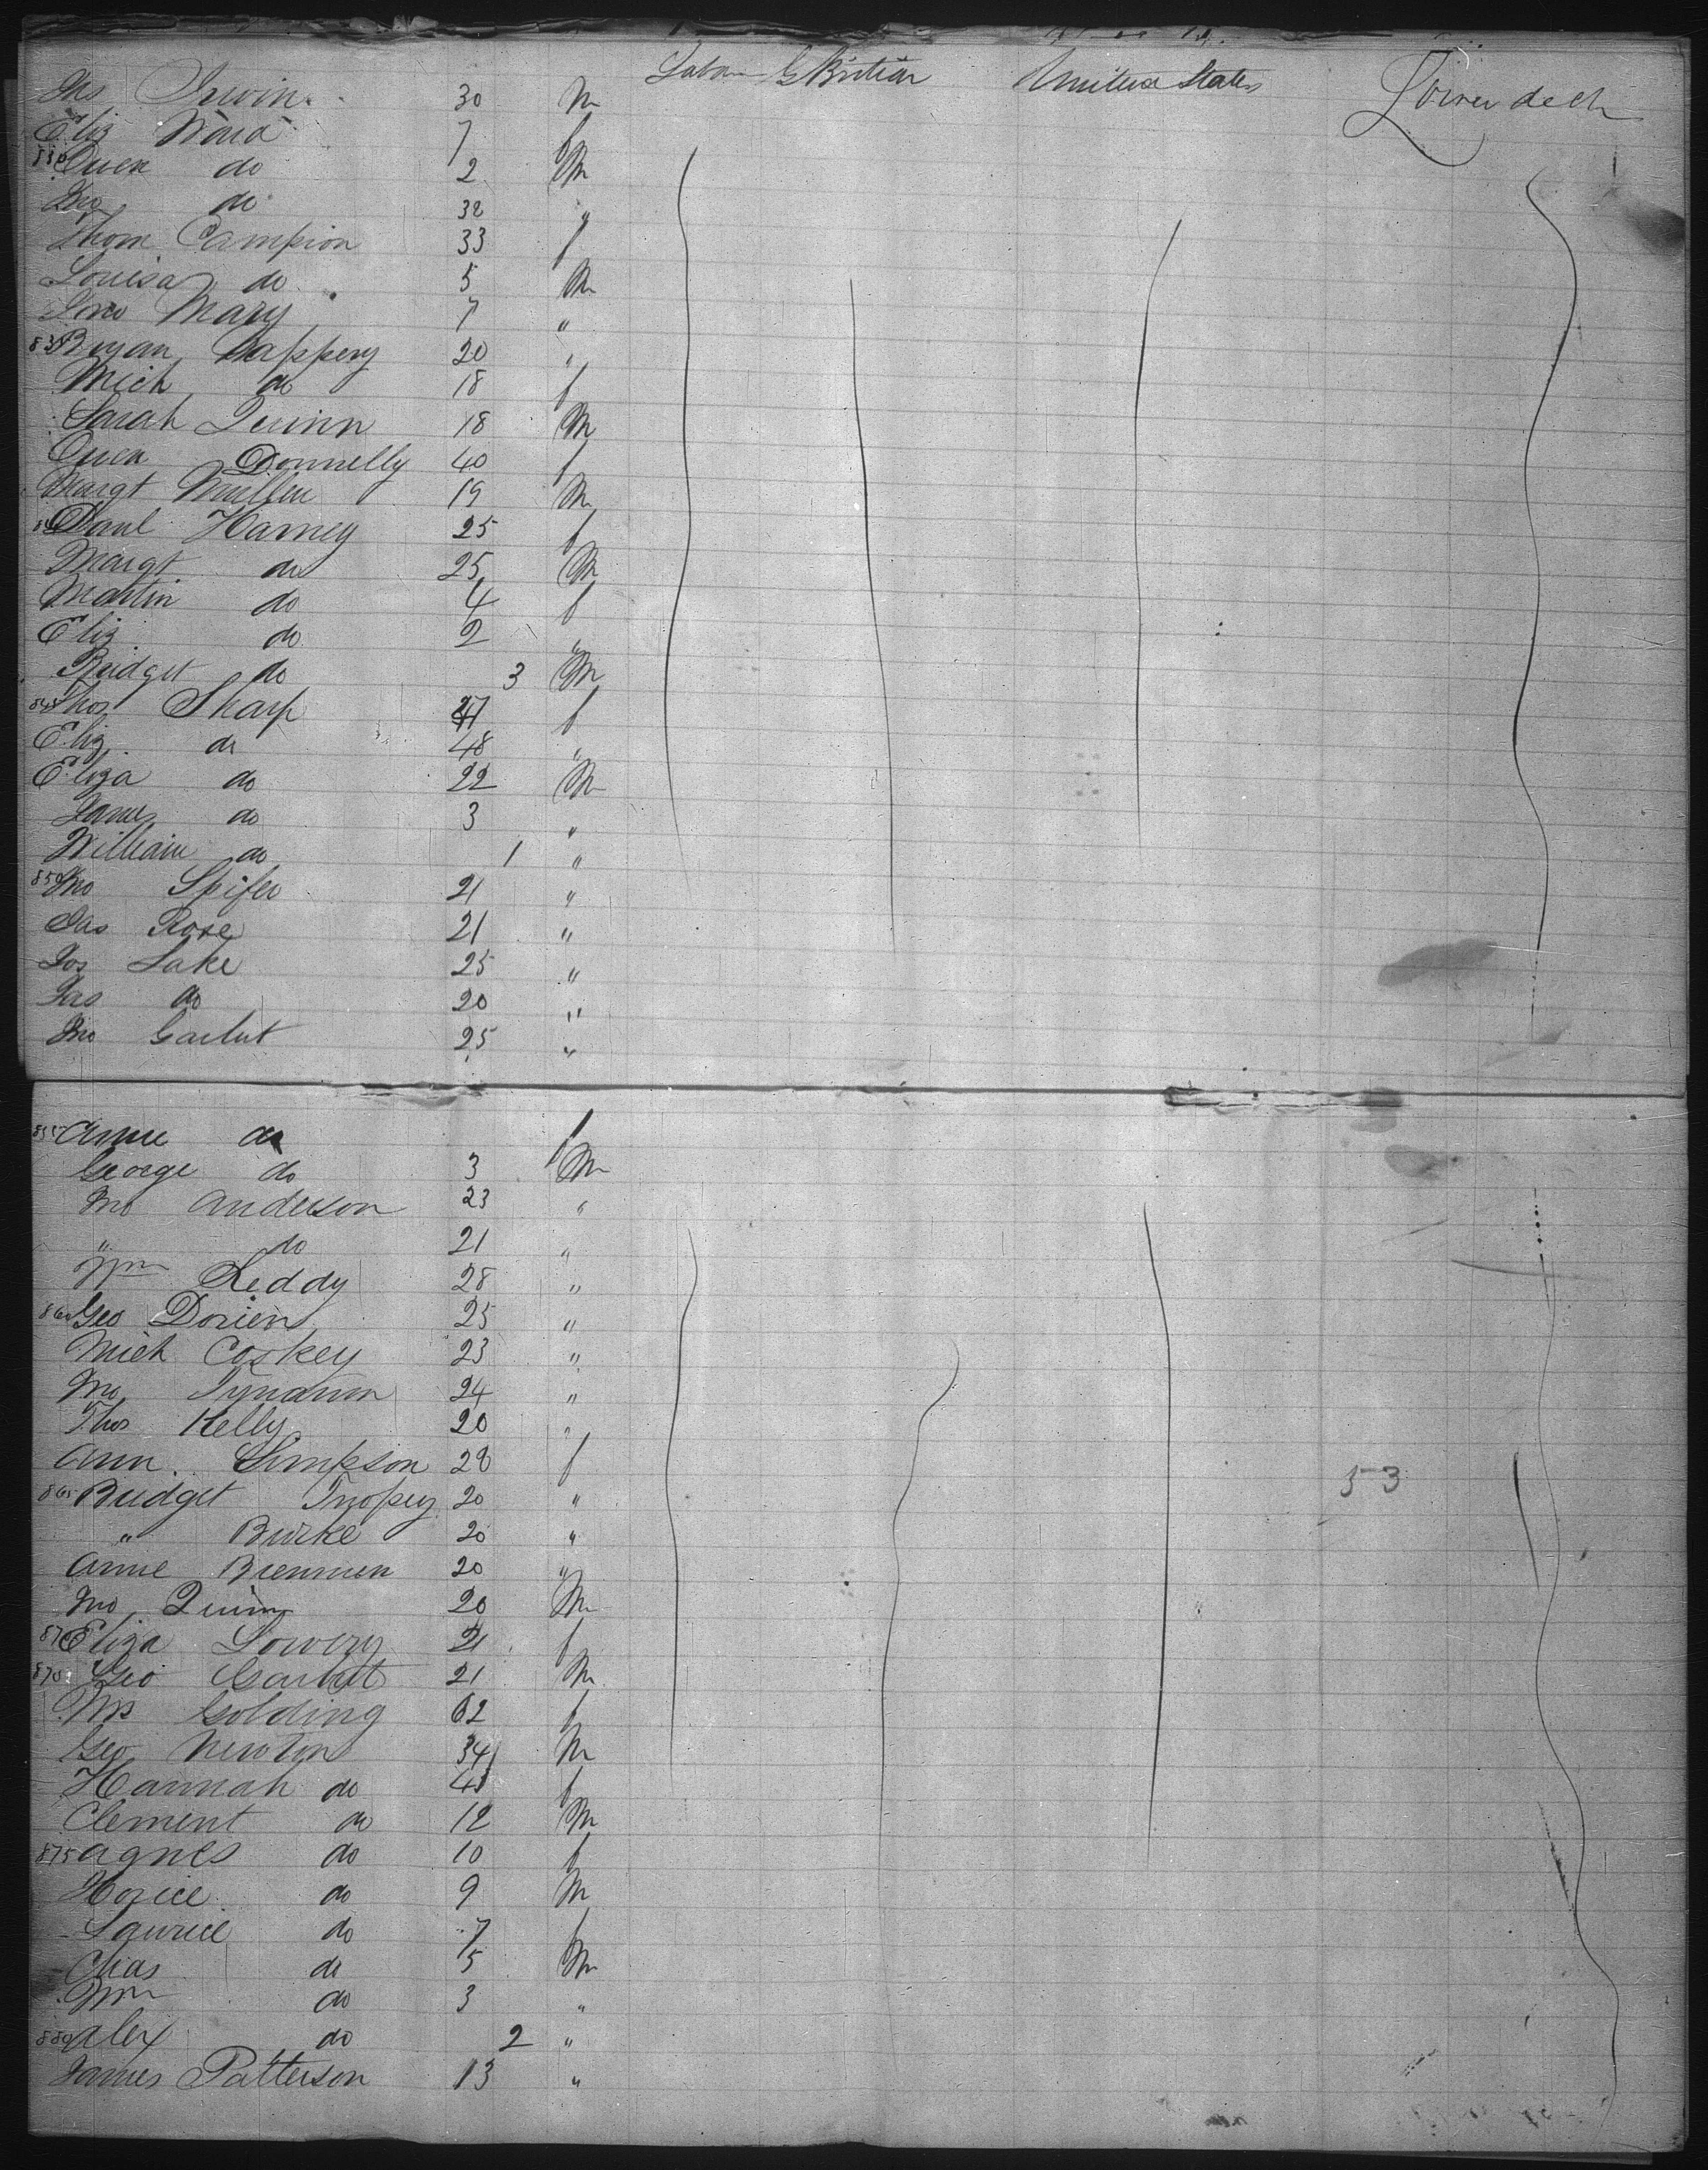 Jas Irwin 30 M Labr G Britian United States Lower deck
Eliz Ward 7 f
830 Owen do 2 M
Jno do 32 "
Thom Campion 33 f
Louisa do 5 M
Jno Mary 7 "
835 Bryan Cappery 20 "
Mich do 18 f
Sarah Quinn 18 M
Owen Donnelly 40 f
Margt Mullin 19 M
Danl Harney 25 f
Margt do 25 M
Martin do 4 f
Eliz do 2 "
Bridget do 3 M
845 Thos Sharp 47 f
Eliz do 48 "
Eliza do 22 M
James do 3 "
William do 1 "
850 Jno Spifer 21 "
Jas Rose 21 "
Jos Lake 25 "
Jas do 20 "
Jno Garbut 25 "
855 Anne do f
George do 3 M
Jno Anderson 23 "
" do 21 "
Wm Leddy 28 "
860 Geo Dorien 25 "
Mich Coskey 23 "
Jno Tynanon 24 "
Thos Kelly 20 "
Ann Simpson 28 f 53
865 Bridget Tropey 20 "
" Burke 20 "
Anne Brennen 20 "
Jno Quinn 20 M
870 Eliza Lowery 21 f
870 Geo Garbut 21 M
Mrs Golding 62 f
Geo Newton 34 M
Hannah do 45 f
Clement do 12 M
875 Agnes do 10 f
Horice do 9 M
Laurice do 7 f
Chas do 5 M
Wm do 3 "
880 Alex do 2 "
James Patterson 13 "